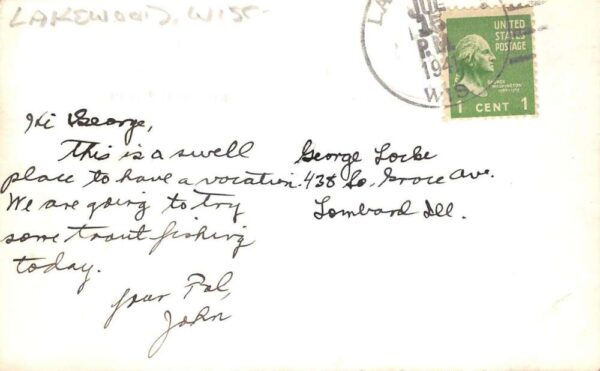 LAKEWOOD, WISC
LA
JUL
15
P.M.
1941
WIS
UNITED
STATES
POSTAGE
GEORGE
WASHINGTON
1 CENT 1
Hi George,
This is a swell
place to have a vocation.
We are going to try
some trout fishing
today.
Your Pal,
John
George Locke
438 So. Grace Ave.
Lombard Ill.